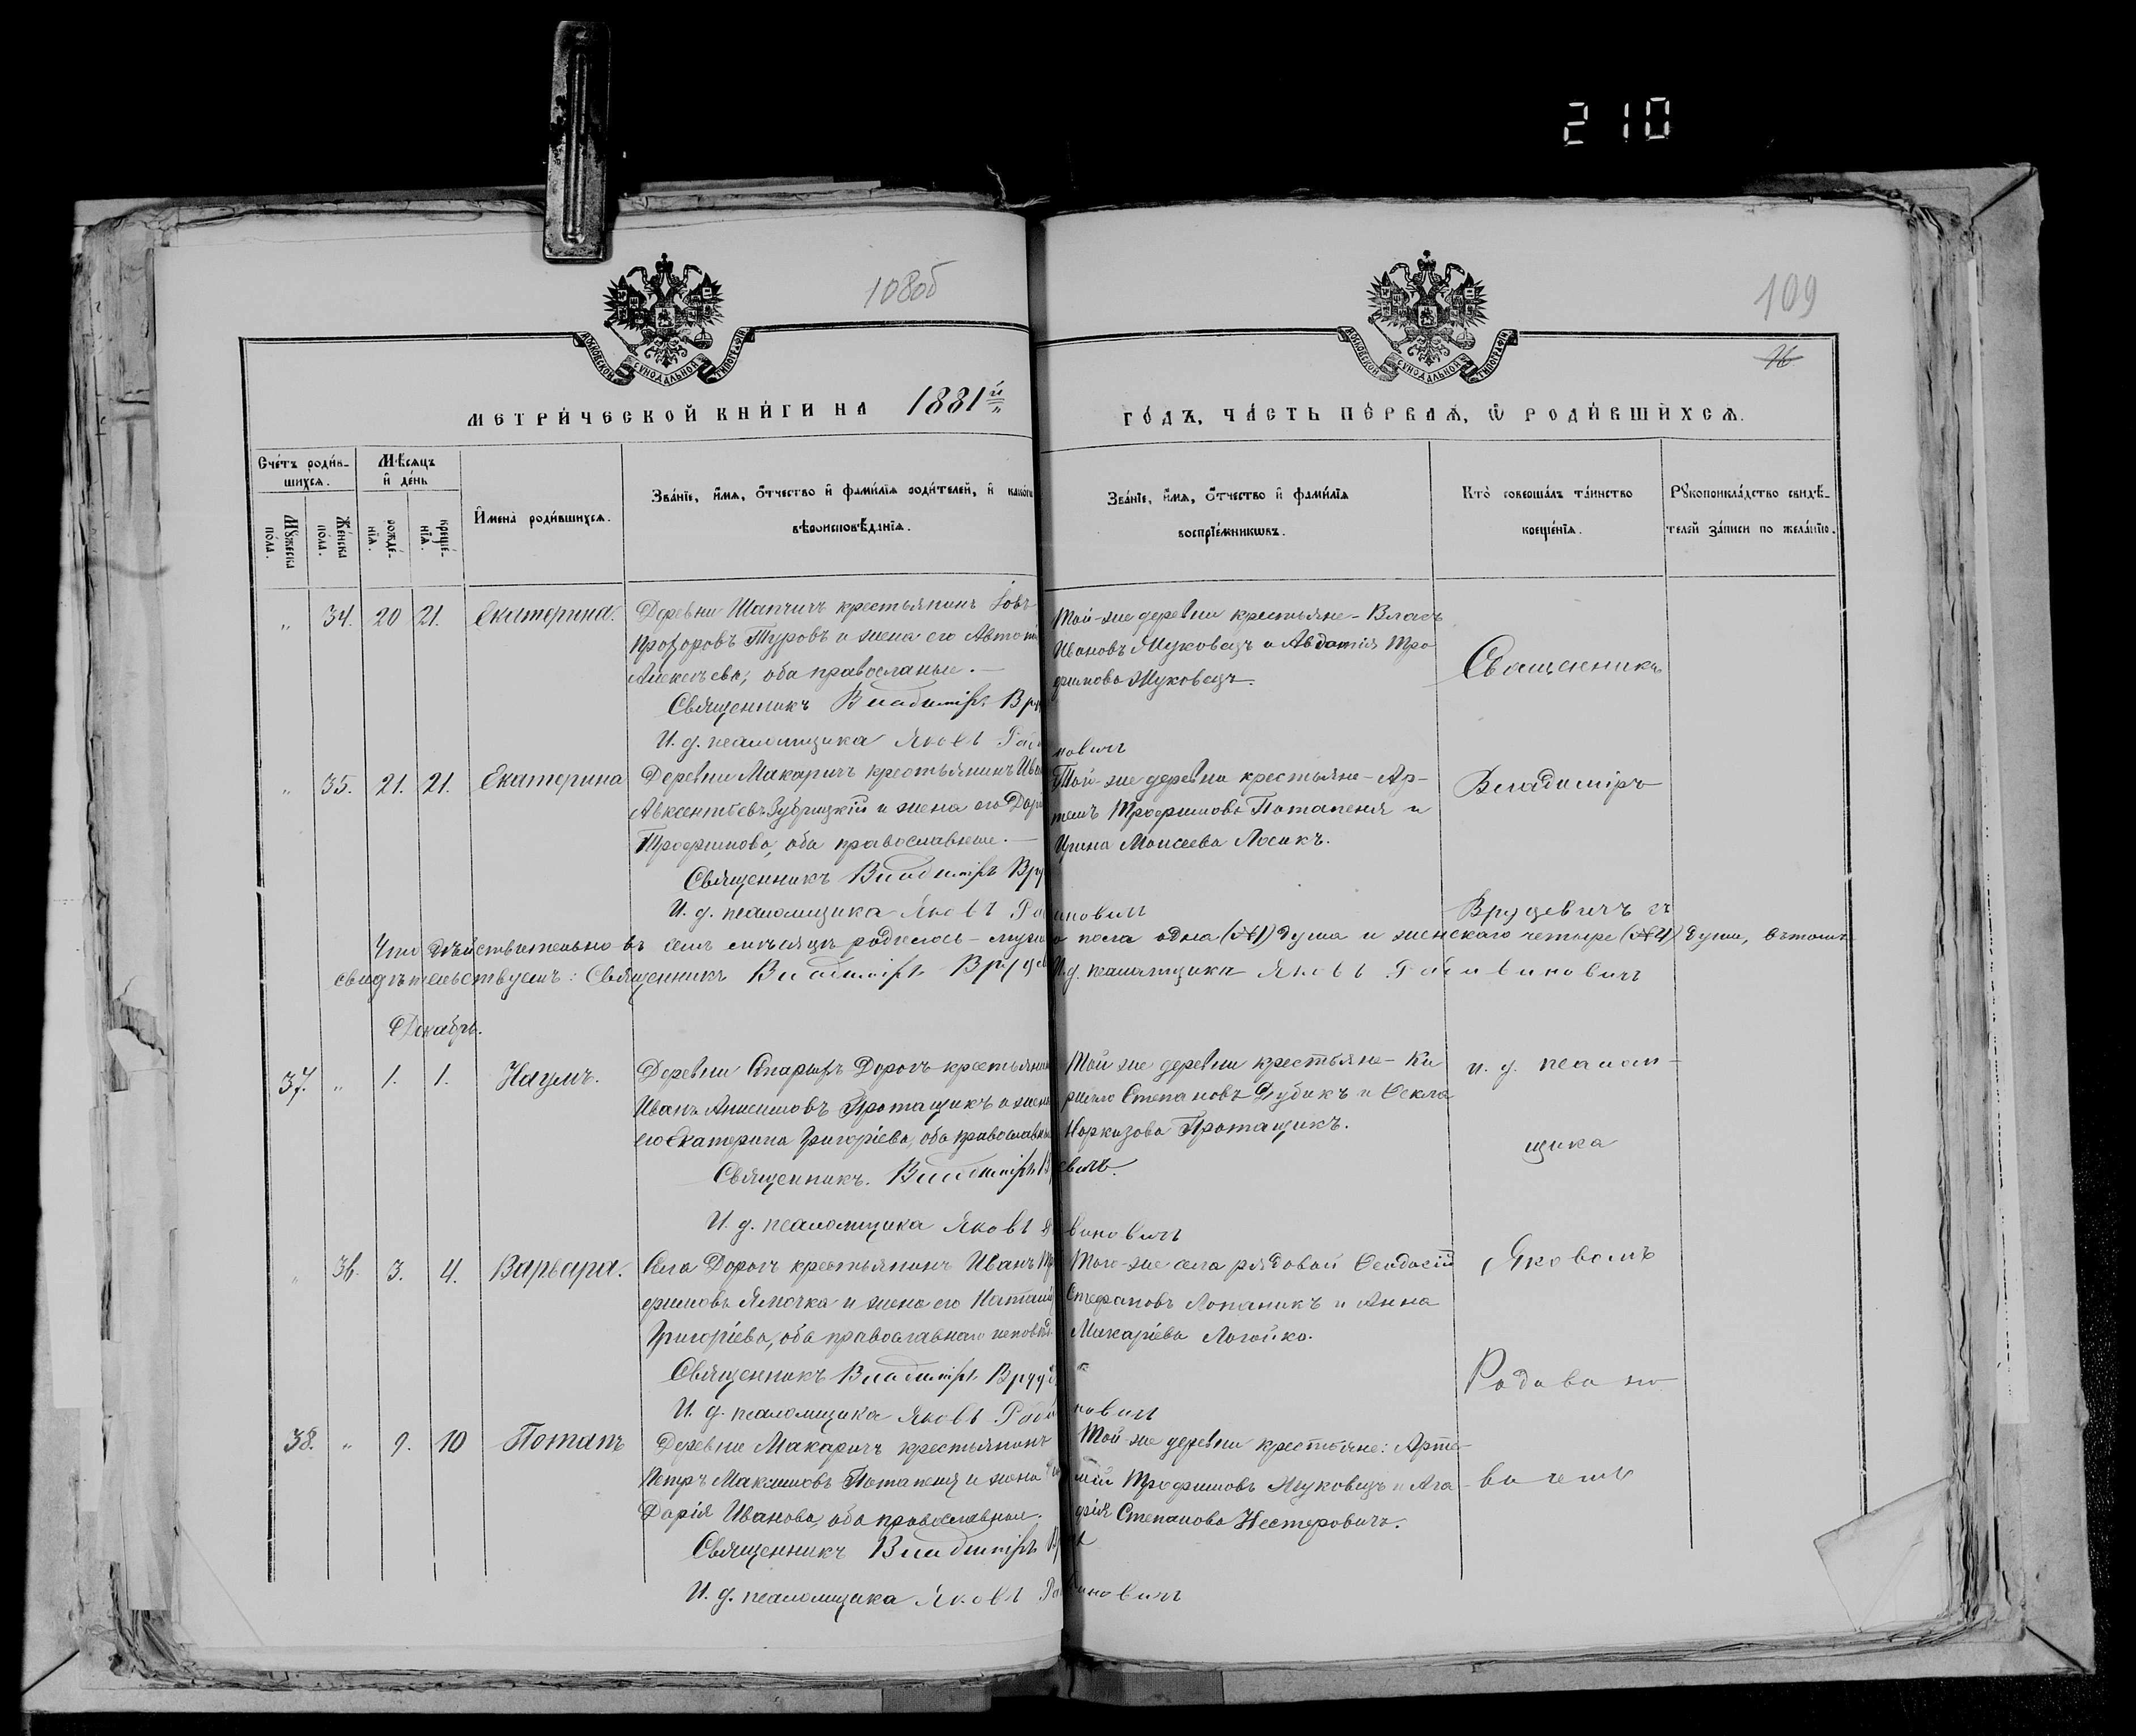 210
108об
109
МОСКОВСКОЙ СѴНОДАЛЬНОЙ ТИПОГРАФІИ
МОСКОВСКОЙ СѴНОДАЛЬНОЙ ТИПОГРАФІИ
МЕТРИ́ЧЕСКОЙ КНИ́ГИ НА 1881й
ГО́ДЪ, ЧА́СТЬ ПЕ́РВАѦ, Ѡ РОДИ́ВШИХСѦ.
Сче́тъ роди́вшихсѧ.
Мꙋ́жеска по́ла.
Же́нска по́ла.
Мѣ́сѧцъ и де́нь
рожде́нїѧ.
креще́нїѧ.
Имена̀ роди́вшихсѧ.
Зва́нїе, и́мѧ, о́тчество и фами́лїѧ роди́телей, и како́гѡ
вѣроисповѣ́данїѧ.
Зва́нїе, и́мѧ, о́тчество и фами́лїѧ
воспрїе́мникѡвъ.
Кто̀ соверша́лъ та́инство
креще́нїѧ.
Рꙋкоприкла́дство свидѣ́телей за́писи по жела́нїю.
„ 34. 20 21. Екатерина.
Деревни Шапчичъ крестьянинъ Іовъ
Прохоровъ Туровъ и жена его
Алексѣева, оба православные.
Священникъ Владиміръ
И. д. псаломщика Яковъ
Той-же деревни крестьяне - Власъ
Ивановъ Жуковецъ и Авдотія Тро
фимова Жуковецъ.
новичъ
Священникъ
„ 35. 21. 21. Екатерина
Деревни Макаричъ крестьянинъ
Авксентіевъ Зубрицкій и жена его
Трофимова, оба православные.
Священникъ Владиміръ
И. д. псаломщика Яковъ
Той-же деревни крестьяне - Ар-
темъ Трофимовъ Потапеня и
Ирина Моисеева Лосикъ.
новичъ
Владиміръ
Вруцевичъ съ
Что дѣйствительно въ семъ мѣсяцѣ родилось - пола одна (№1) душа и женскаго четыре (№4) души, въ томъ
свидѣтельствуемъ: Священникъ Владиміръ И. д. псаломщика Яковъ
Декабрь.
37. „ 1. 1. Наумъ.
Деревни Старыхъ Дорогъ крестьянинъ
Иванъ Анисимовъ Протащикъ и жена
его Екатерина Григоріева, оба православные
Священникъ. Владиміръ
И. д. псаломщика Яковъ
Той же деревни крестьяне - Ки
рилло Степановъ Дубикъ и Ѳекла
Наркизова Протащикъ.
новичъ
и. д. псалом-
щика
„ 36. 3. 4. Варвара.
Села Дорогъ крестьянинъ Иванъ
фимовъ Ямочка и жена его
Григоріева, оба православнаго
Священникъ Владиміръ
И. д. псаломщика Яковъ
Того-же села рядовой Ѳеодосій
Стефановъ Лопаникъ и Анна
Макаріева Логойко.
новичъ
Яковомъ
38. „ 9. 10 Потапъ
Деревни Макаричъ крестьянинъ
Петръ Максимовъ Потапеня и жена
Дарія Иванова, оба православные.
Священникъ Владиміръ
И. д. псаломщика Яковъ
Той-же деревни крестьяне: Арте-
мій Трофимовъ Жуковецъ и Ага-
фія Степанова Нестеровичъ.
новичъ